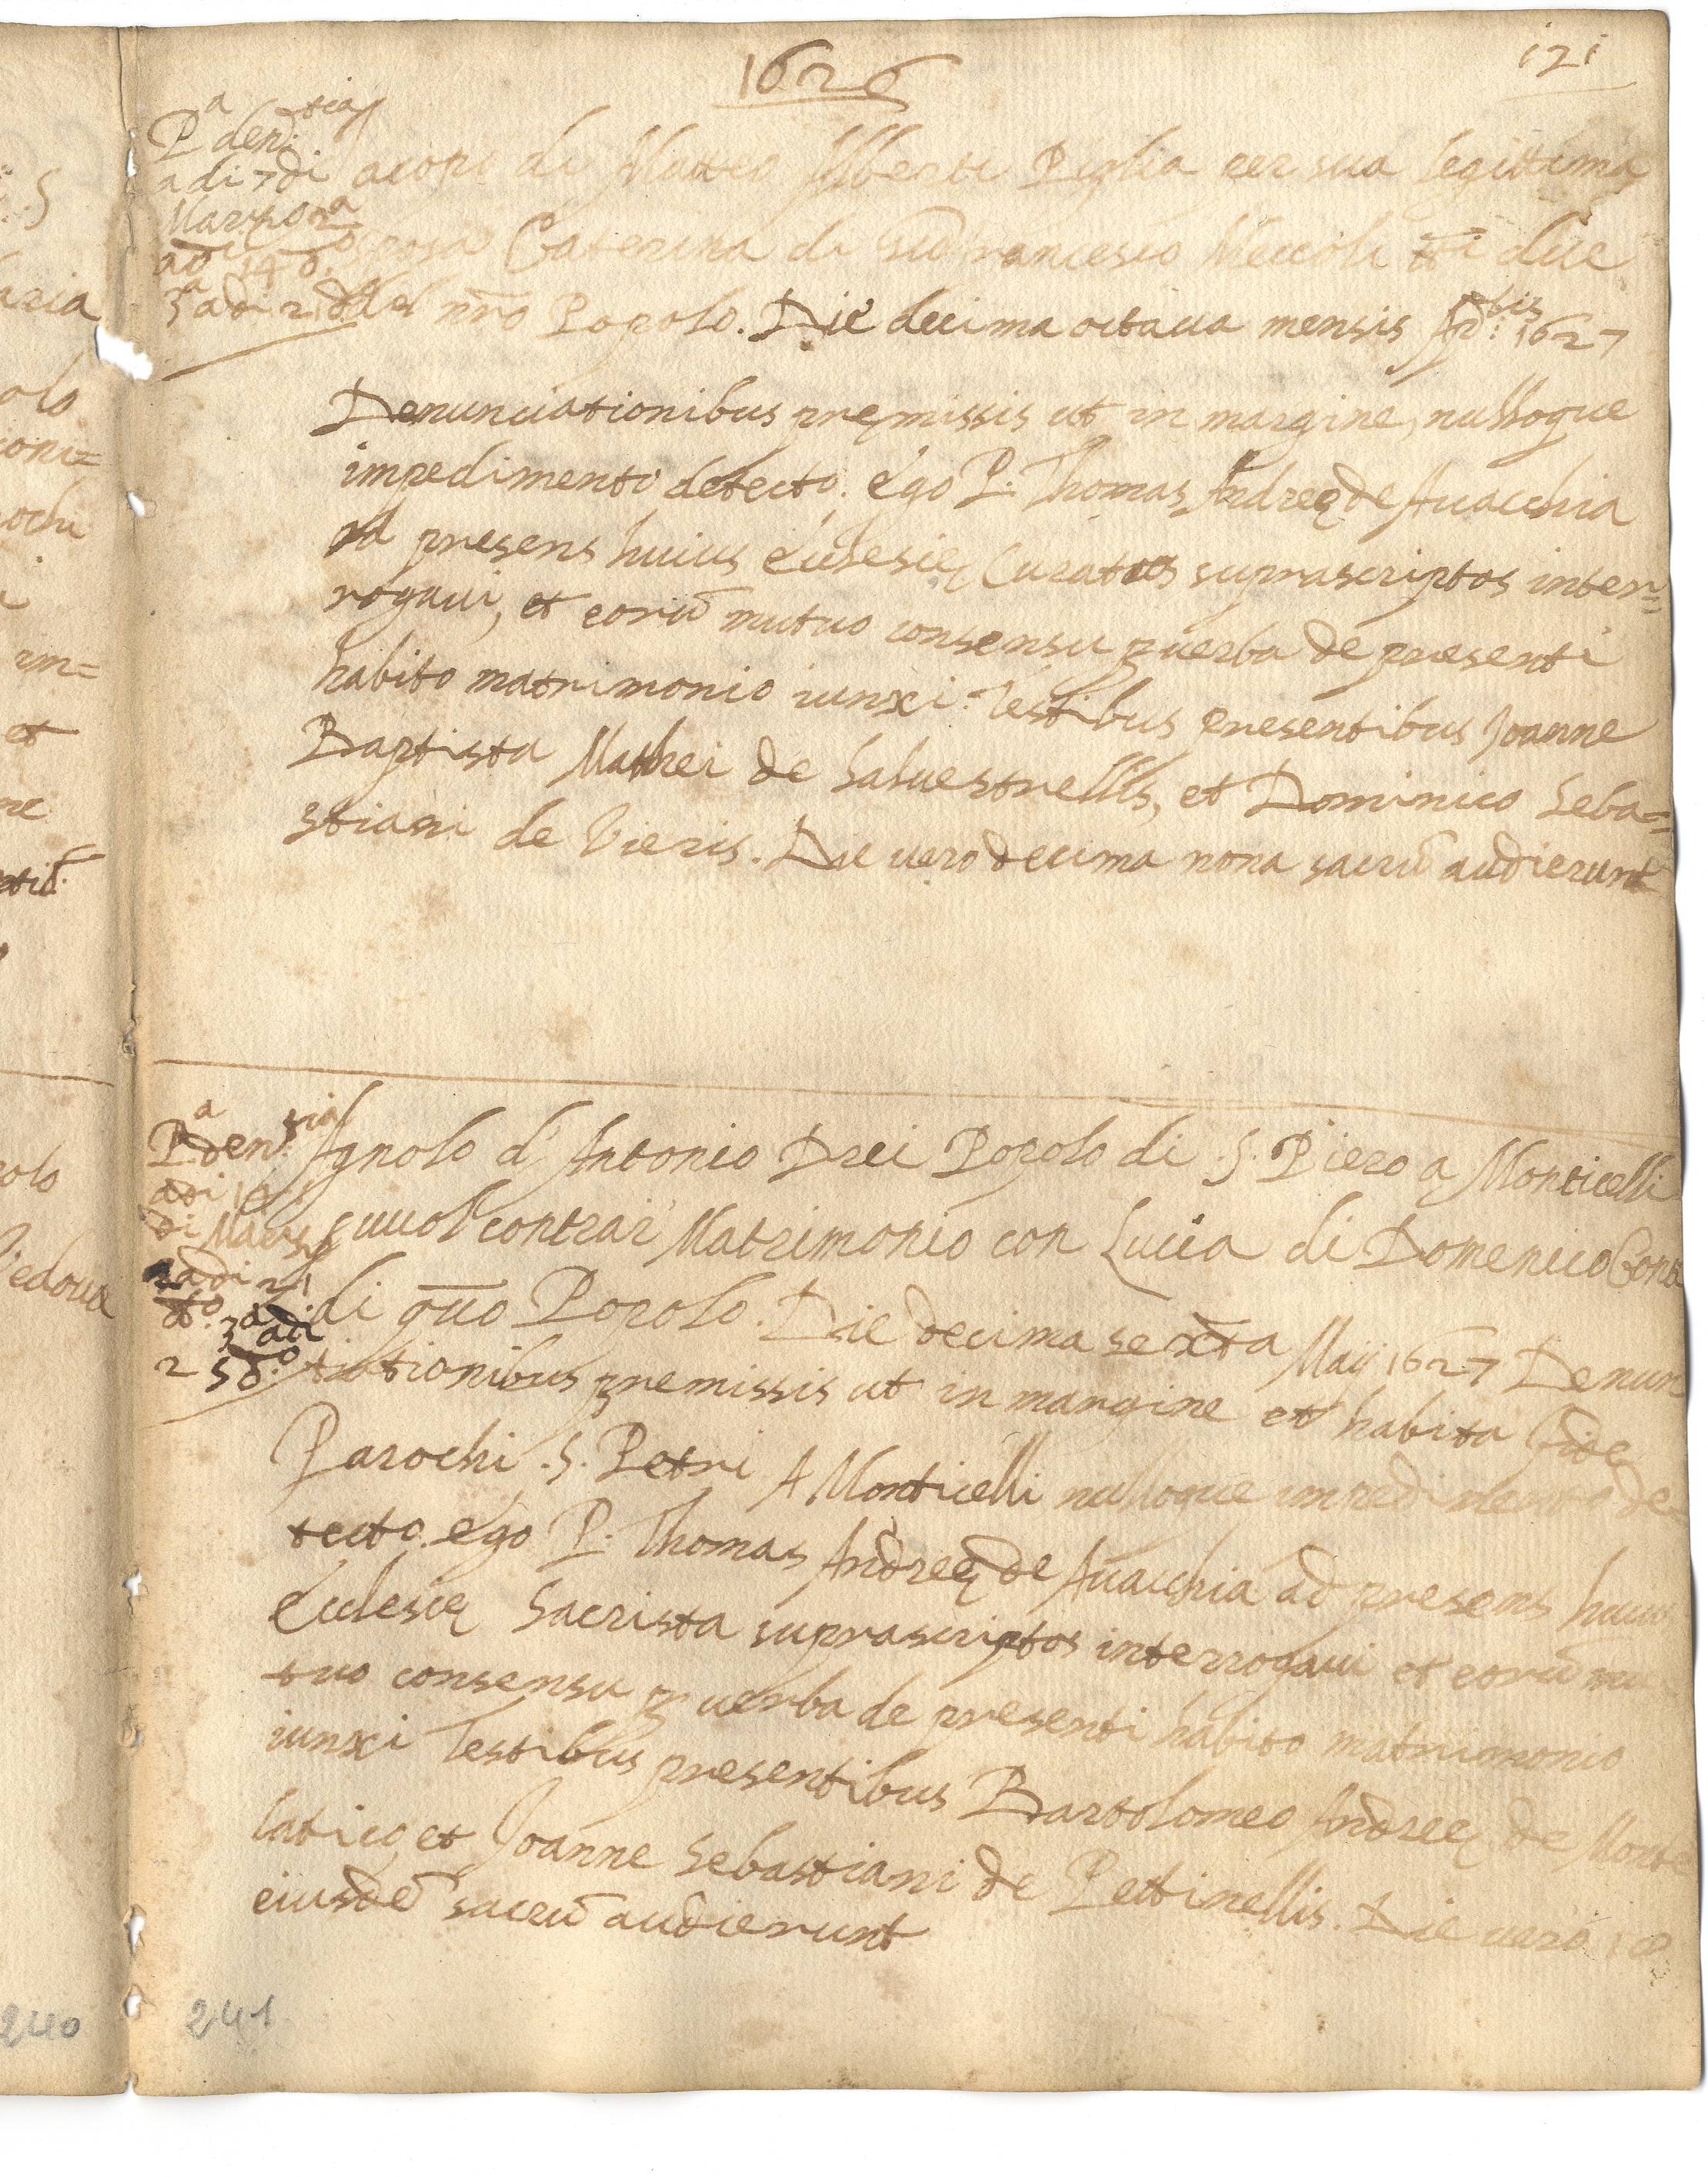 1626
121
P.a den.tia
adi 7 di
Marzo 2.a
adi 14 d.o
3.a adi 21 d.o
Jacopo di Matteo Alberti Piglia per sua legittima
sposa Caterina di Gio francesco Meccoli tti due
del nrō Popolo. Die decima octaua mensis Ap:lis 1627
Denunciationibus pręmissis ut in margine, nulloque
impedimento detecto. ego P. Thomas Andreę de Auacchia
ad presens huius Ecclesię Curatus suprascriptos inter=
rogaui, et eorū mutuo consensu p uerba de presenti
habito matrimonio iunxi. Testibus presentibus Joanne
Baptista Mathei de Saluestrellis, et Dominico Seba=
stiani de Vieris. Die uero decima nona sacrū audierunt
P.a den.tia
adi 19
di Marzo
2.a adi 21
d.o 3.a adi
25 d.o
Agnolo d'Antonio Drei Popolo di .S. Piero a Monticelli
vuol contrar Matrimonio con Lucia di Domenico
di qūo Popolo. Die decima sexta Maij 1627 Denun
tiationibus premissis ut in margine et habita fide
Parochi .S. Petri A Monticelli nulloque impedimento de
tecto. ego P. Thomas Andreę de Auacchia ad presens huius
Ecclesię Sacrista suprascriptos interrogaui et eorū mu
tuo consensu p uerba de presenti habito matrimonio
iunxi Testibus presentibus Bartolomeo Andreę de Monte
latico, et Joanne Sebastiani de Pettinellis. Die uero 18
eiusdē sacrū audierunt
240
241